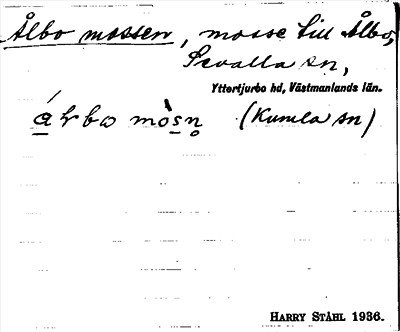 Ålbo mossen, mosse till Ålbo,
Sevalla sn,
Yttertjurbo hd, Västmanlands län.
(Kumla sn)
HARRY STÅHL 1936.